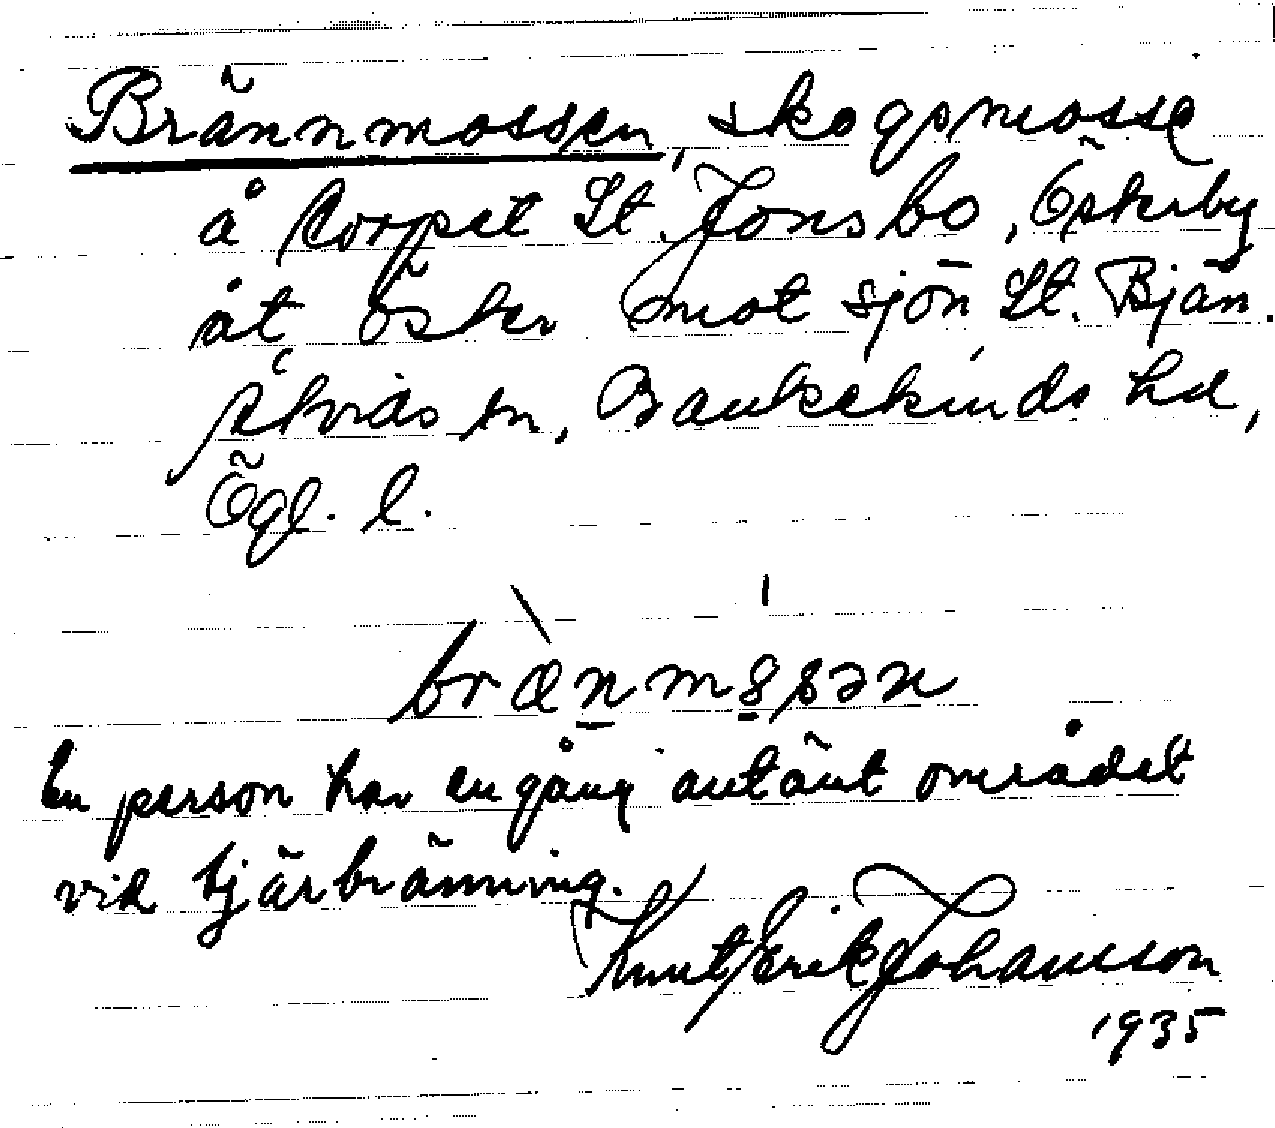 Brännmossen, skogsmosse
å torpet St. Jonsbo, Österby
åt öster mot sjön St. Bjän.
Åtvids sn, Bankekinds hd,
Ögl. l.
bræn məsən
En person har en gång antänt området
vid tjärbränning.
Knut Erik Johansson
1935